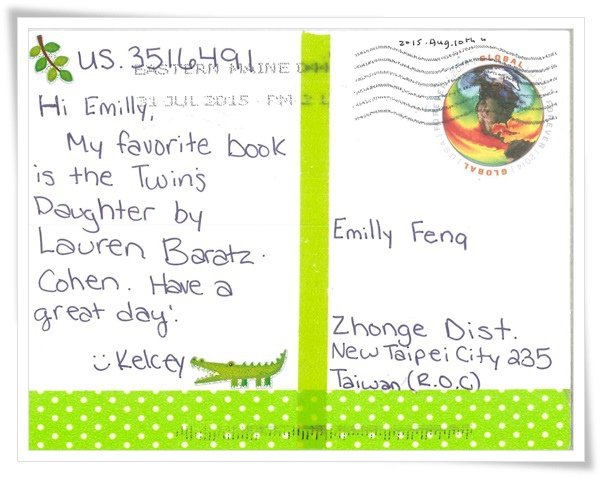 US.3516491
EASTERN MAINE
31 JUL 2015 PM 2 L
Hi Emilly,
My favorite book
is the Twin's
Daughter by
Lauren Baratz-
Cohen. Have a
great day!
Kelcey
2015.Aug.10th
GLOBAL
FOREVER 2014
GLOBAL
Emilly Feng
Zhonge Dist.
New Taipei City 235
Taiwan (R.O.C)